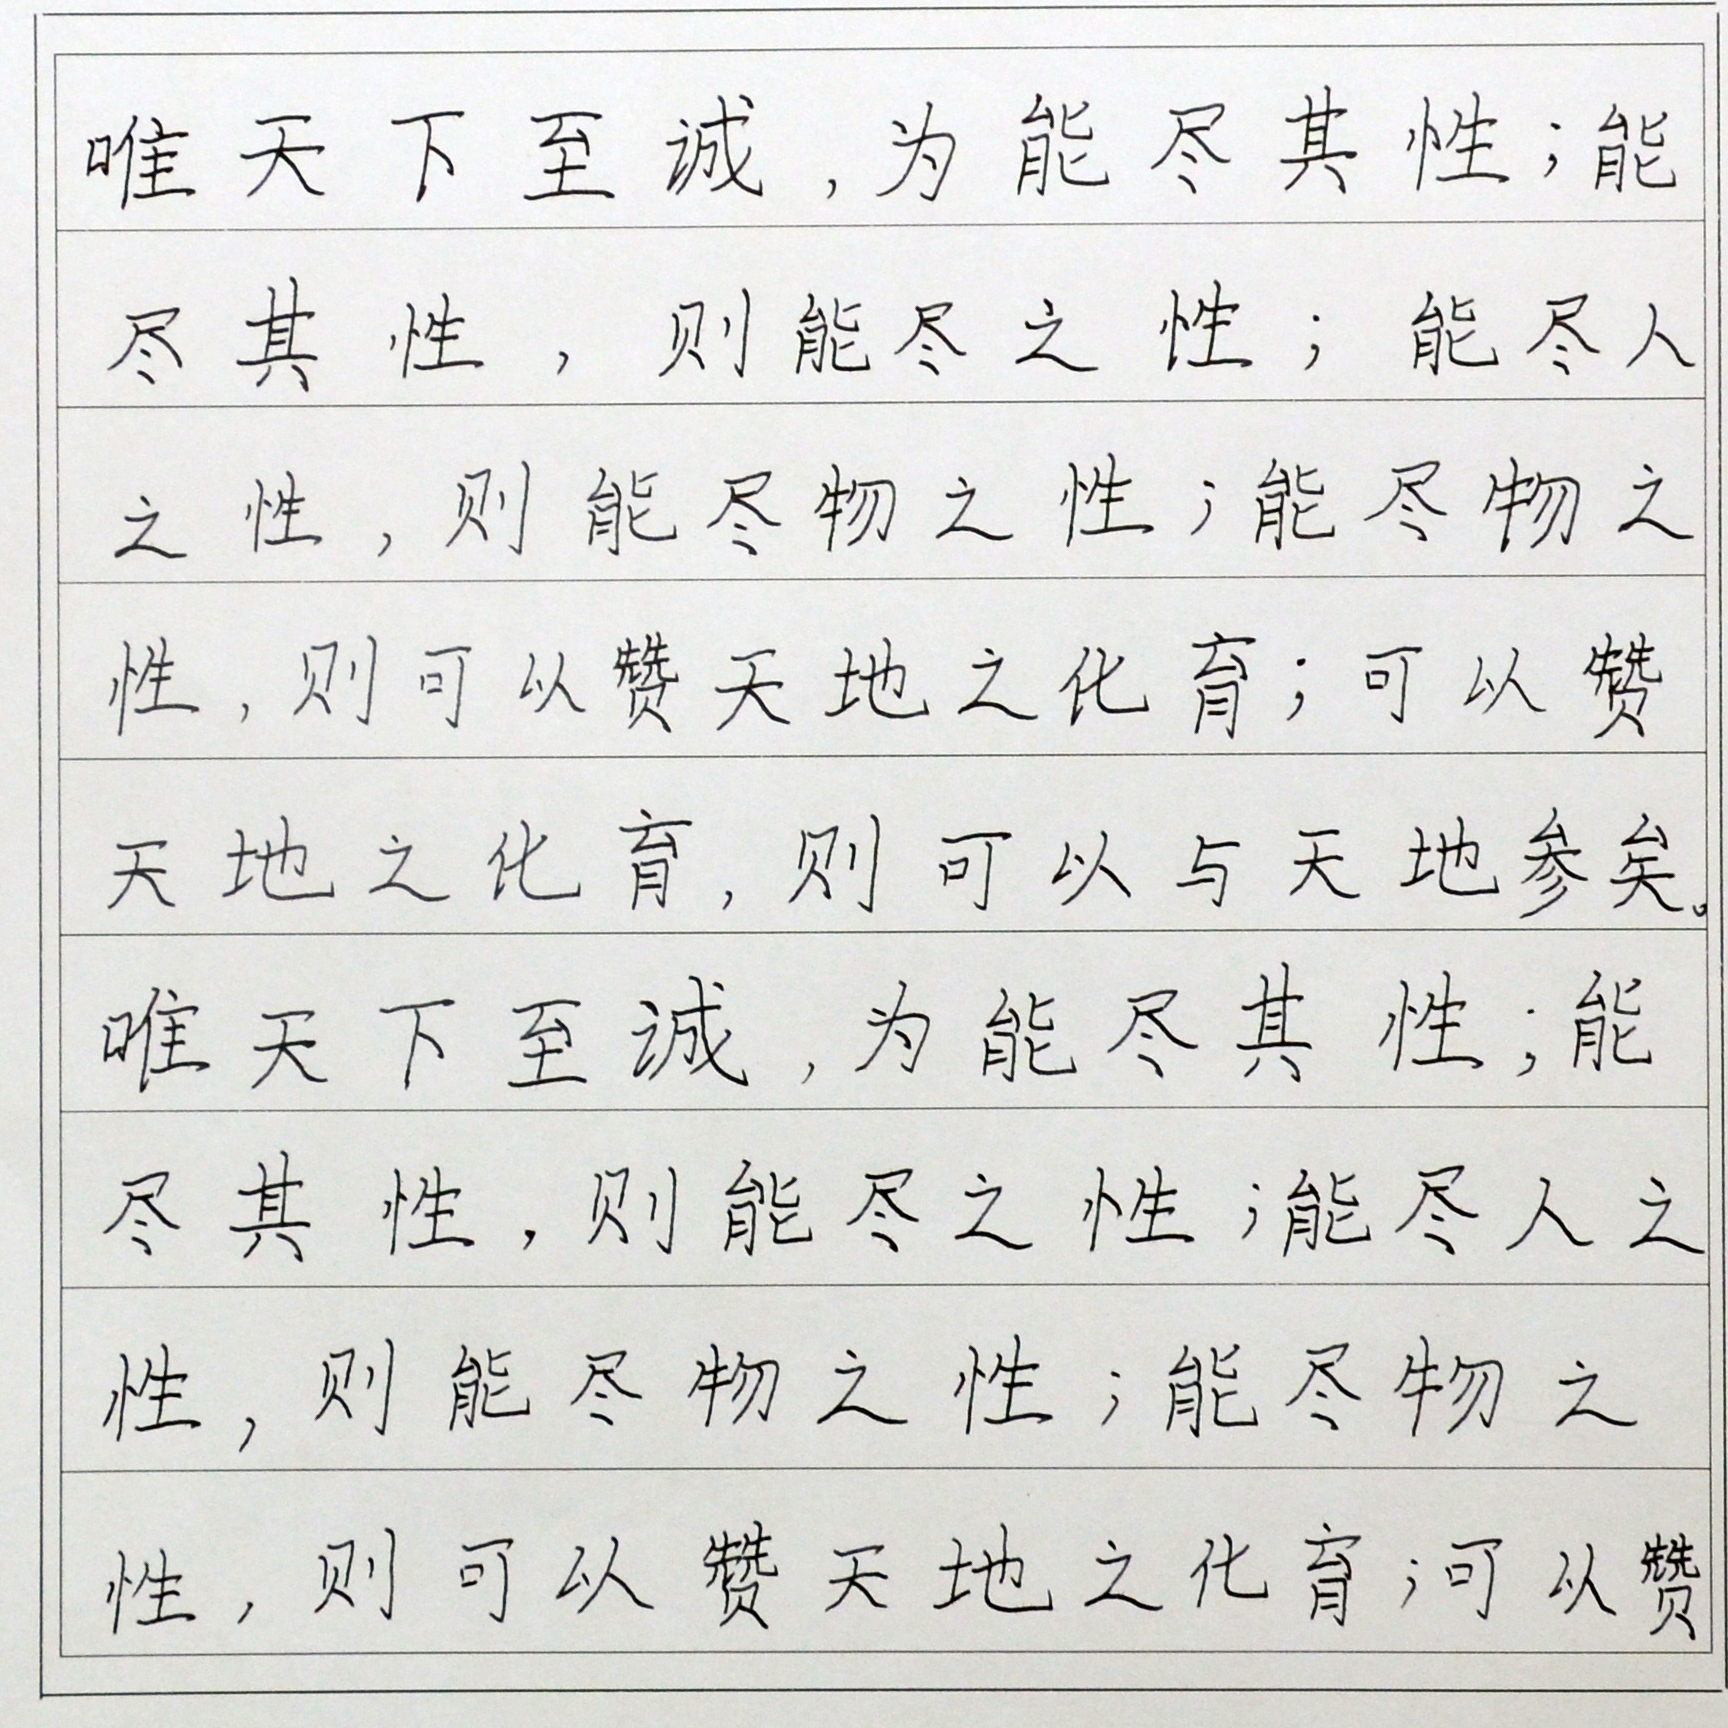 唯天下至诚,为能尽其性;能
尽其性,则能尽之性;能尽人
之性,则能尽物之性;能尽物之
性,则可以赞天地之化育;可以赞
天地之化育,则可以与天地参矣。
唯天下至诚,为能尽其性;能
尽其性,则能尽之性;能尽人之
性,则能尽物之性;能尽物之
性,则可以赞天地之化育;可以赞